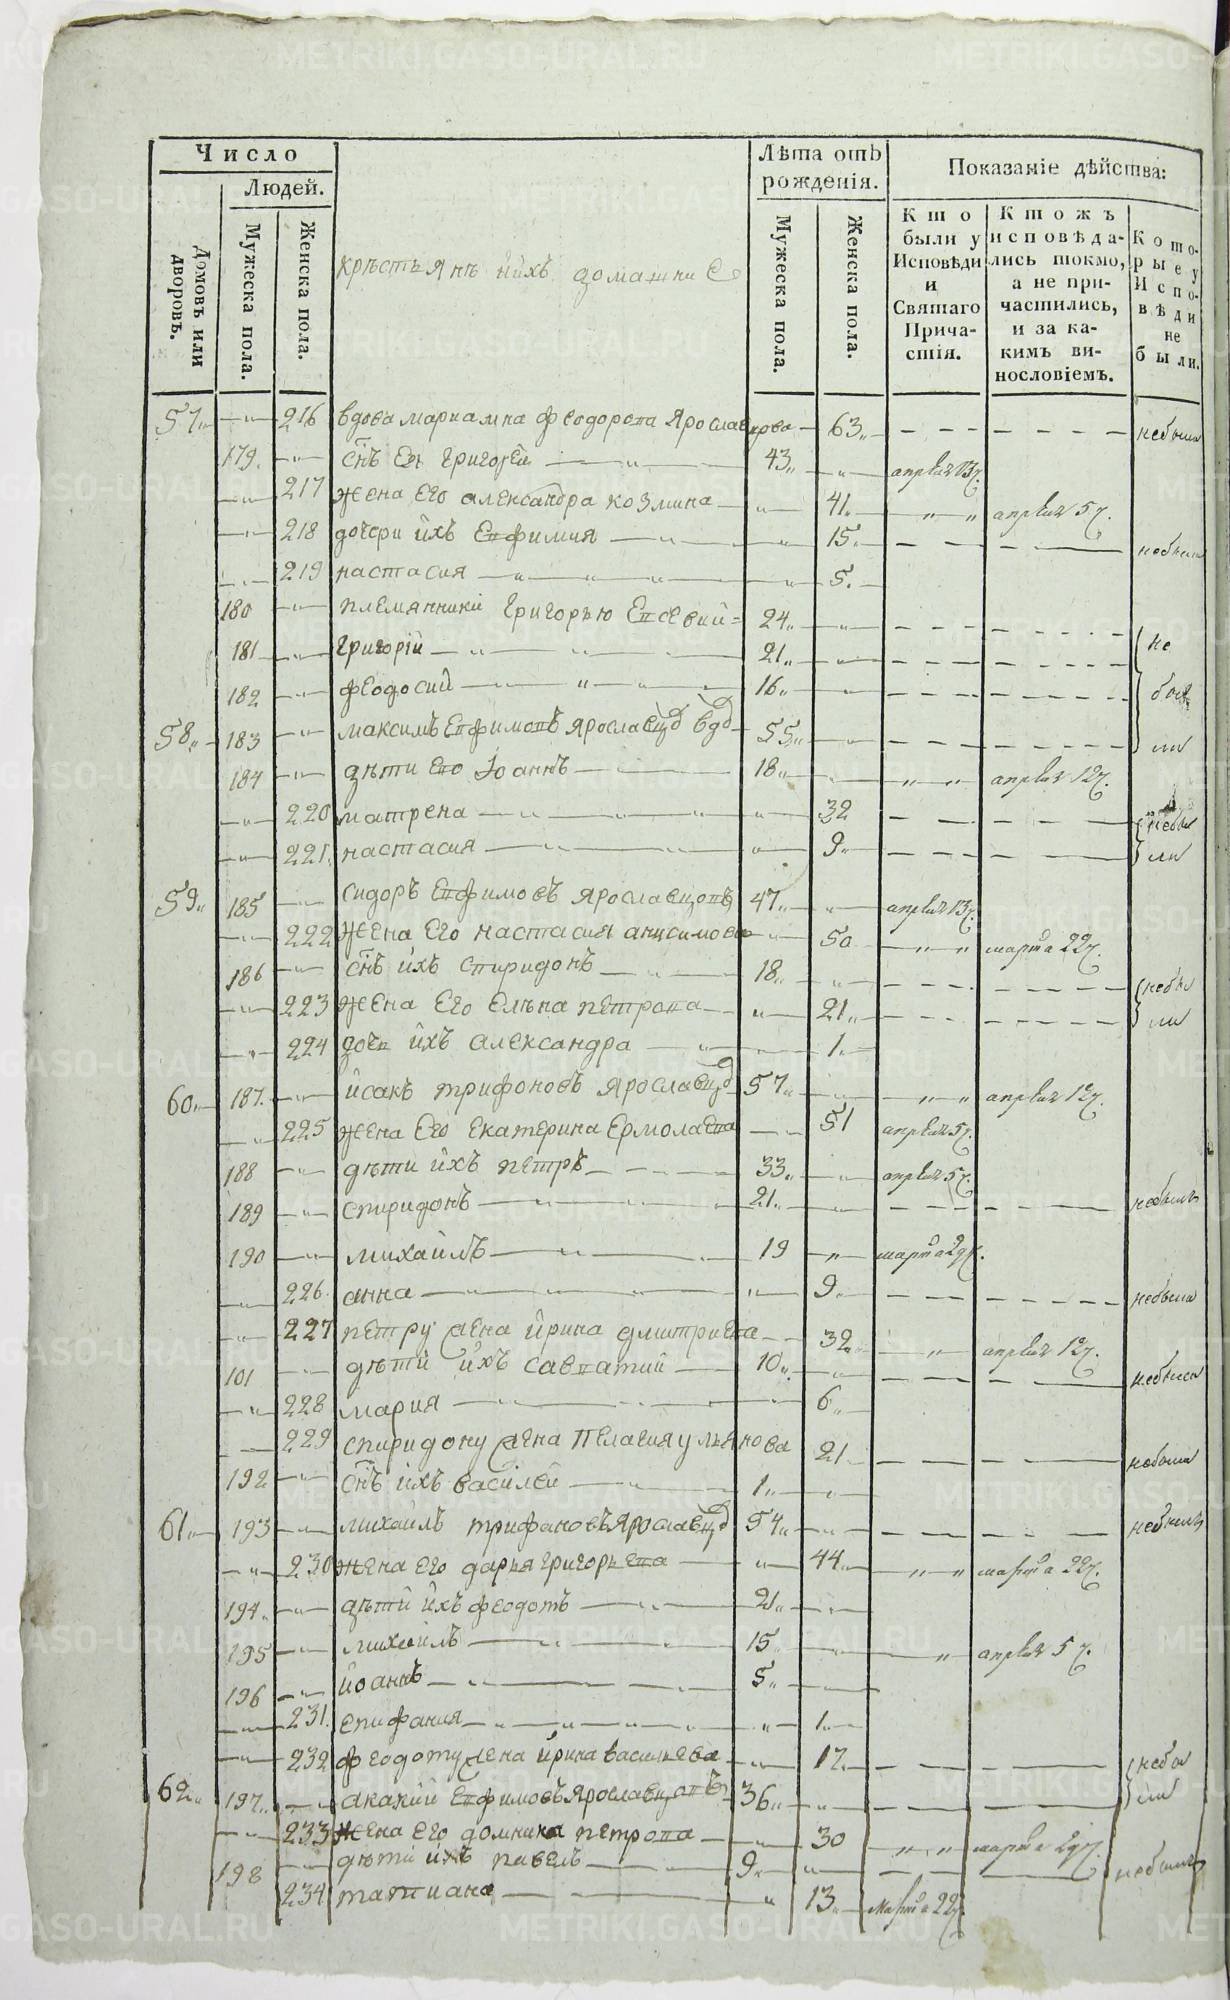 Число
Людей.
Домовъ или дворовъ.
Мужеска пола.
Женска пола.
крѣстьянъ ихъ домашни
Лѣта отъ рожденія.
Мужеска пола.
Женска пола.
Показаніе дѣйства:
Кто были у Исповѣди и Святаго Причастія.
Ктожъ исповѣдались токмо, а не причастились, и за какимъ винословіемъ.
Которые у Исповѣди не были.
57 216 вдова мариамна феодорова Ярославцова 63 небыла
179 снъ Ея григорей 43 апреля 13ч.
217 жена Его александра козмина 41 апреля 5ч.
218 дочери ихъ Евфимия 15 небыла
219 настасия 5
180 племянники григорью Евсевий 24
181 григорій 21 не
182 феодосий 16 бы
58 183 максимъ Евфимовъ Ярославцо вдо 55 ли
184 дѣти Его Іоаннъ 18 апреля 12ч.
220 матрена 32 небы
221 настасия 9 ли
59 185 сидоръ Евфимовъ Ярославцовъ 47 апреля 13ч.
222 жена Его настасия анисимова 50 марта 22ч.
186 снъ ихъ спиридонъ 18 небы
223 жена Его Елѣна петрова 21 ли
224 дочь ихъ александра 1
60 187 Исакъ трифоновъ Ярославцо 57 апреля 12ч.
225 жена Его Екатерина Ермолаева 51 апреля 5ч.
188 дѣти ихъ петръ 33 апреля 5ч.
189 спиридонъ 21 небылъ
190 михаилъ 19 марта 29ч.
226 анна 9 небыла
227 петру жена Ирина дмитриева 32 апреля 12ч.
101 дѣти ихъ савватий 10 небыл
228 мария 6
229 спиридону жена Пелагия ульянова 21 небыла
192 снъ ихъ василей 1
61 193 михаилъ трифановъ Ярославцо 54 небылъ
230 жена Его дарья григорьева 44 марта 22ч.
194 дѣти ихъ феодотъ 21
195 михаилъ 15 апреля 5ч.
196 Иоаннъ 5
231 епифания 1
232 феодоту жена Ирина васильева 17 небы
62 197 акакий Евфимовъ Ярославцовъ 36 ли
233 жена Его домника петрова 30 марта 29ч.
198 дѣти ихъ павелъ 9 небылъ
234 татиана 13 марта 22ч.
METRIKI.GASO-URAL.RU